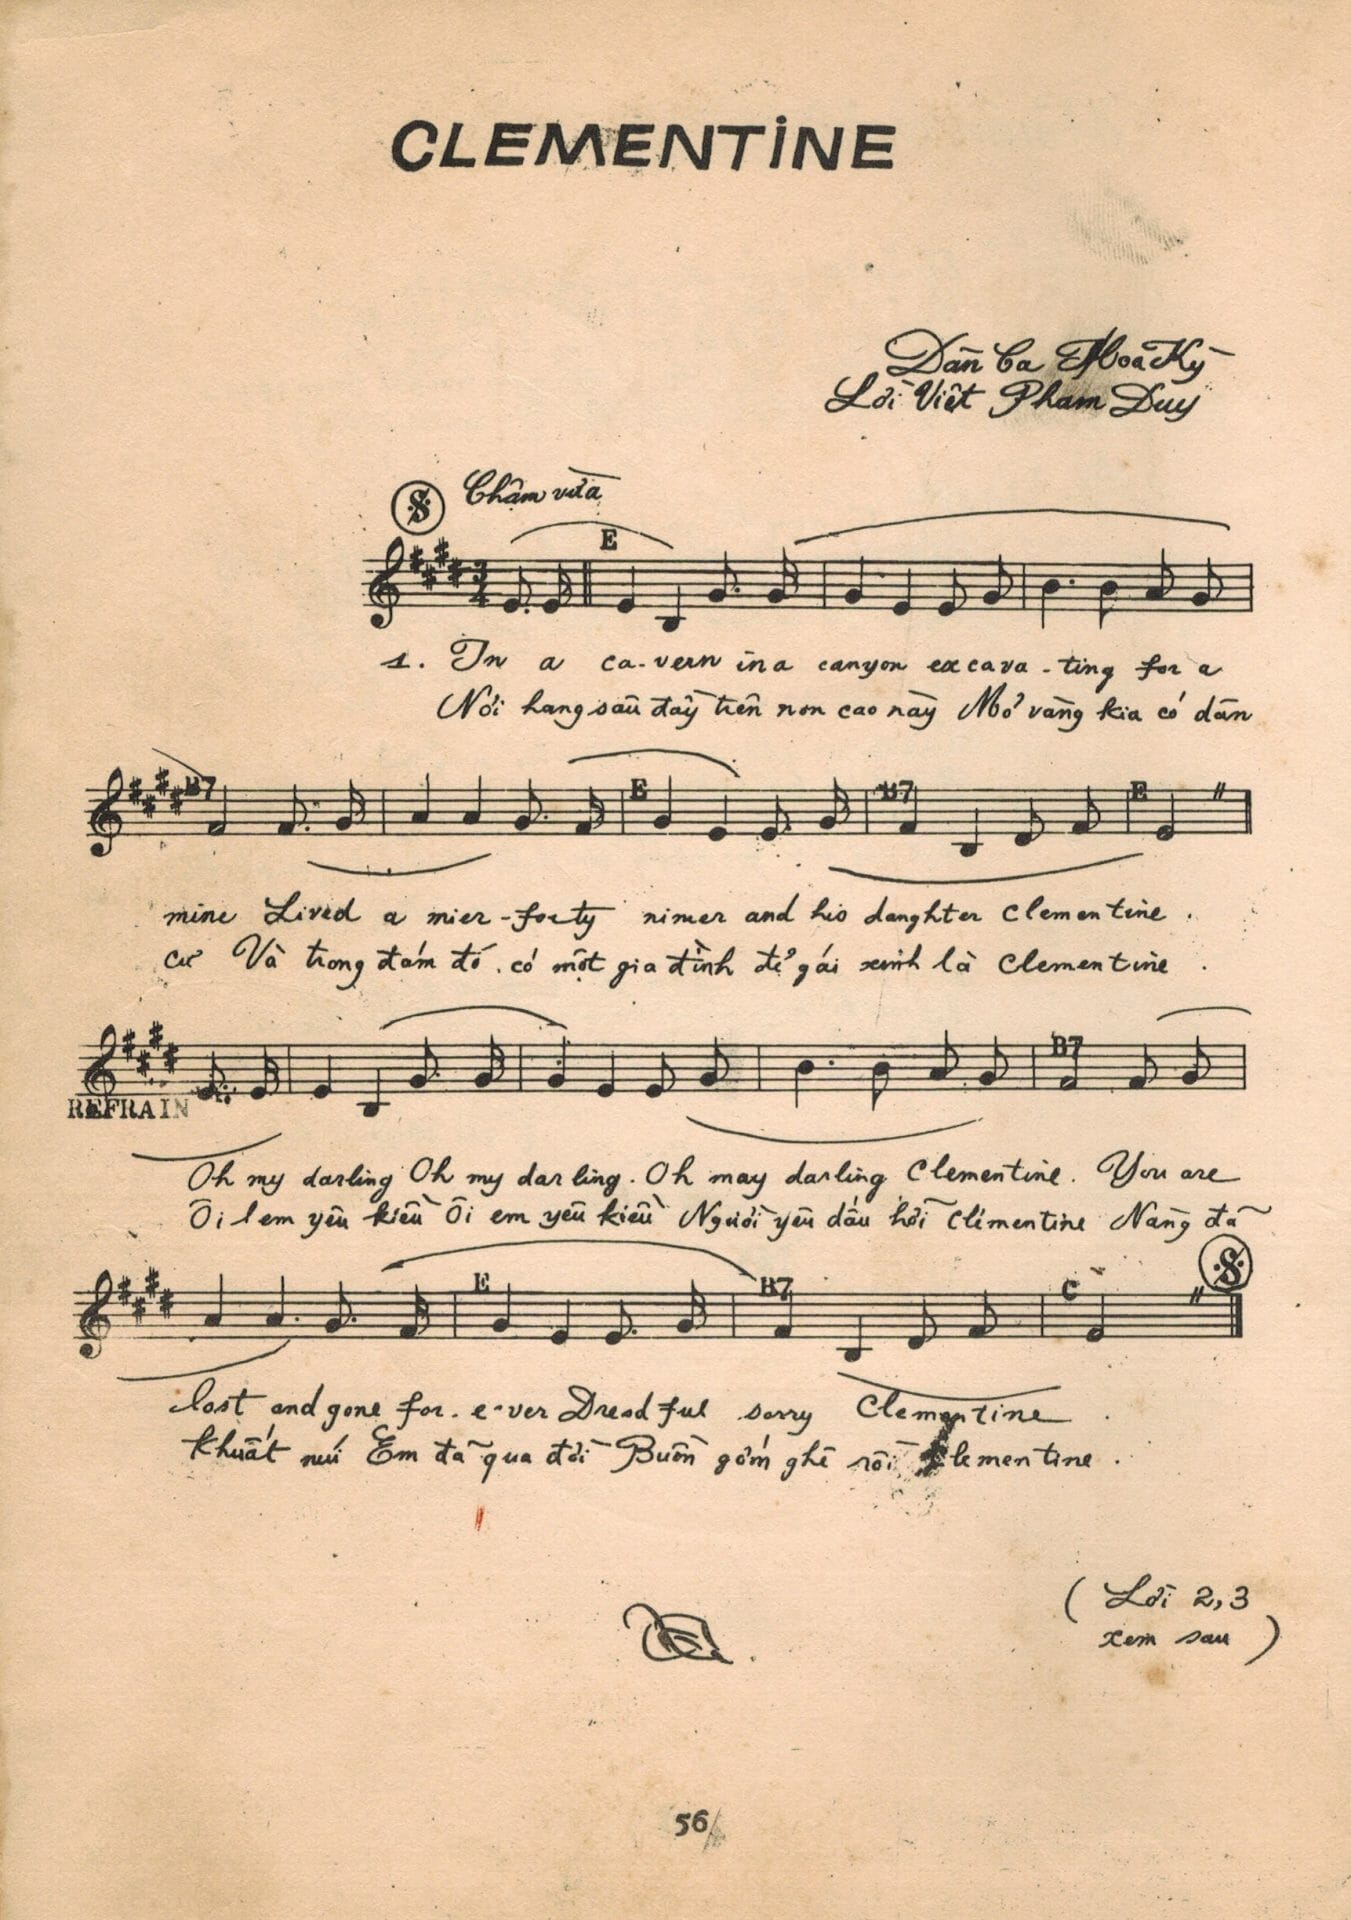 CLEMENTINE
Dân Ca Hoa Kỳ
Lời Việt Phạm Duy
Chậm vừa
E
1. In a ca-vern in a canyon excava-ting for a
Nơi hang sâu đầy trên non cao này Mỏ vàng kia có dân
B7 E B7 E
mine Lived a mier-forty nimer and his daughter Clementine.
cư Và trong đám đó. có một gia đình đẻ gái xinh là Clementine.
REFRAIN
B7
Oh my darling Oh my darling. Oh may darling Clementine. You are
Ôi em yêu kiều Ôi em yêu kiều Người yêu dấu hỡi Clémentine Nàng đã
E B7 C
lost and gone for-e-ver Dreadful sorry Clementine.
khuất núi Em đã qua đời Buồn gớm ghê rồi Clementine.
( Lời 2,3
xem sau )
56